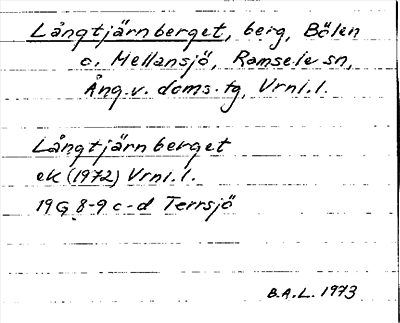 Långtjärnberget, berg, Bölen
o. Mellansjö, Ramsele sn,
Ång. v. doms. tg, Vrnl. l.
Långtjärnberget
ek (1972) Vrnl. l.
19G 8-9 c-d Terrsjö
B.A.L. 1973